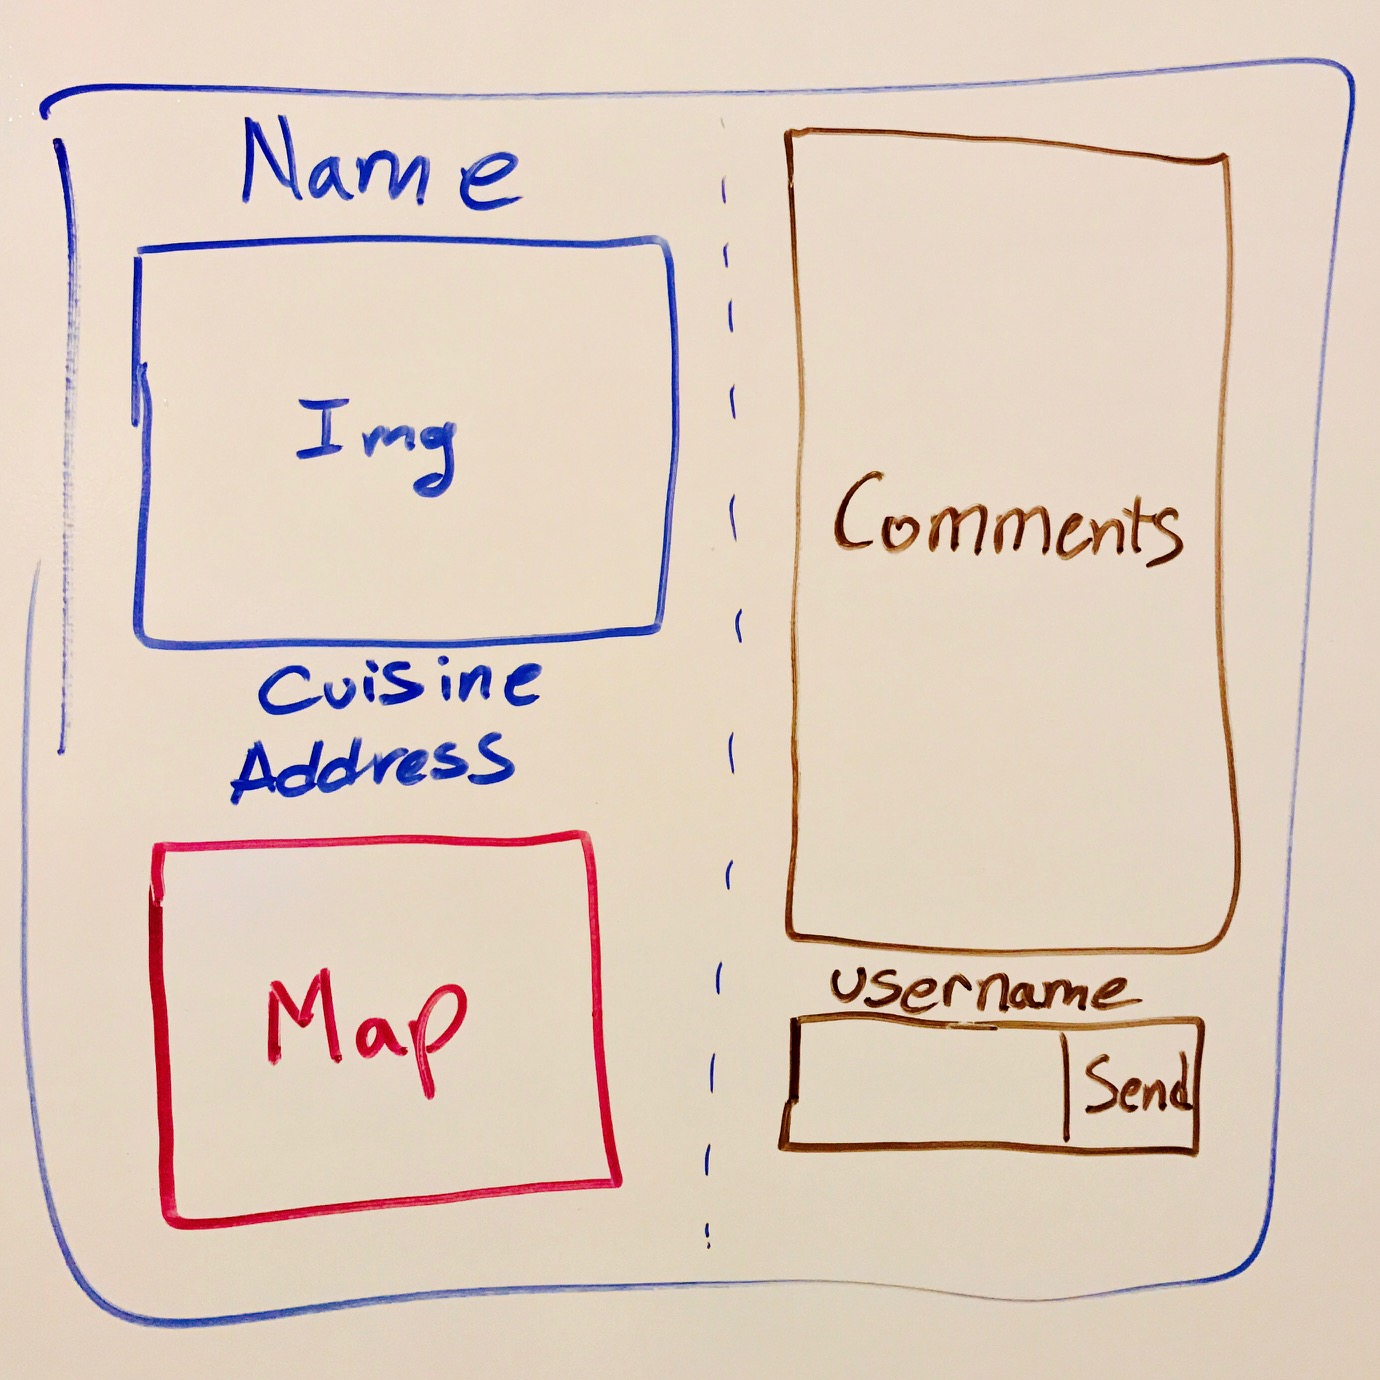 Name
Img
Cuisine
Address
Map
Comments
username
Send